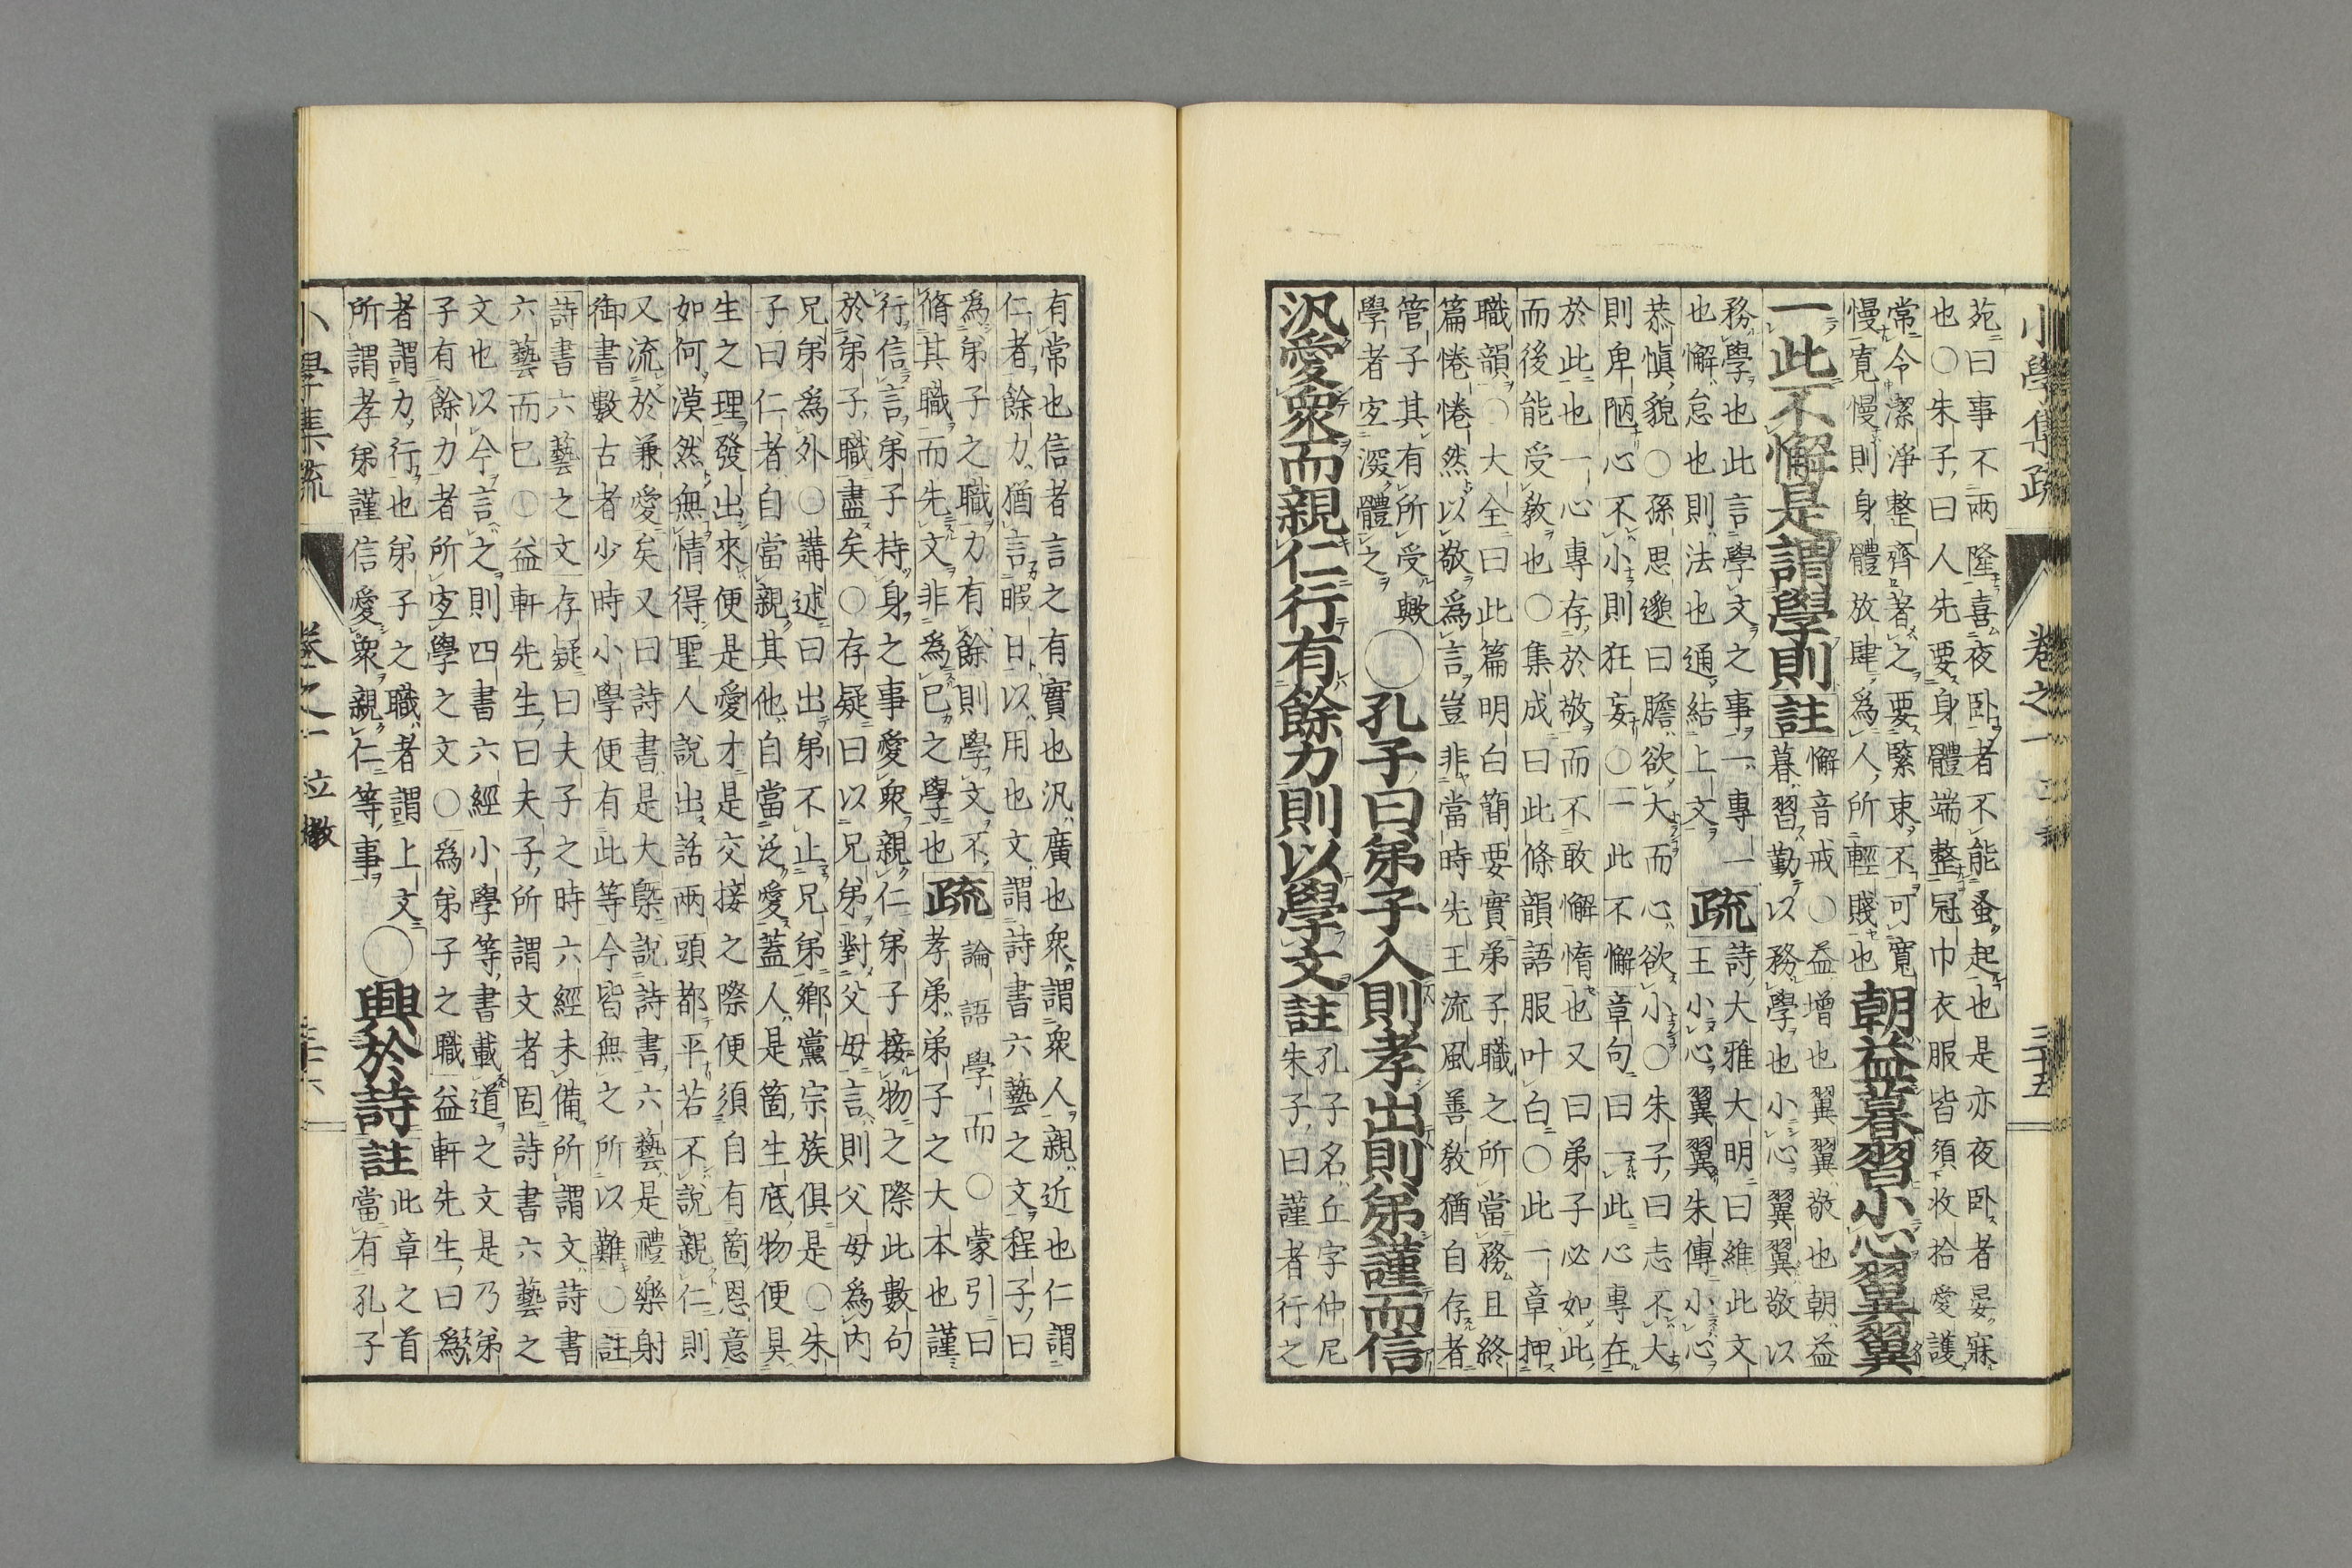 小學集疏 卷之一 三十五
苑曰事不兩隆喜夜卧者不能蚤起也是亦夜卧者晏寐
也〇朱子曰人先要身體端整冠巾衣服皆須收拾愛護
常令潔淨整齊著之要緊束不可寬
慢寬慢則身體放肆爲人所輕賤也
朝益暮習小心翼翼
一此不懈是謂學則
註
懈音戒〇益增也翼翼敬也朝益
暮習勤以務學也小心翼翼敬以
務學也此言學文之事一專一
也懈怠也則法也通結上文
疏
詩大雅大明曰維此文
王小心翼翼朱傳小心
恭愼貌〇孫思邈曰膽欲大而心欲小〇朱子曰志不大
則卑陋心不小則狂妄〇一此不懈章句曰一此心專在
於此也一心專存於敬而不敢懈惰也又曰弟子必如此
而後能受敎也〇集成曰此條韻語服叶白〇此一章押
職韻〇大全曰此篇明白簡要實弟子職之所當務且終
篇惓惓然以敬爲言豈非當時先王流風善敎猶自存者
管子其有所受歟
學者宜深體之
〇孔子曰弟子入則孝出則弟謹而信
汎愛衆而親仁行有餘力則以學文
註
孔子名丘字仲尼
朱子曰謹者行之
有常也信者言之有實也汎廣也衆謂衆人親近也仁謂
仁者餘力猶言暇日以用也文謂詩書六藝之文程子曰
爲弟子之職力有餘則學文不
脩其職而先文非爲己之學也
疏
論語學而〇蒙引曰
孝弟弟子之大本也謹
行信言弟子持身之事愛衆親仁弟子接物之際此數句
於弟子職盡矣〇存疑曰以兄弟對父母言則父母爲内
兄弟爲外〇講述曰出弟不止兄弟鄉黨宗族俱是〇朱
子曰仁者自當親其他自當泛愛蓋人是箇生底物便具
生之理發出來便是愛才是交接之際便須自有箇恩意
如何漠然無情得聖人說出話兩頭都平若不說親仁則
又流於兼愛矣又曰詩書是大槩說詩書六藝是禮樂射
御書數古者少時小學便有此等今皆無之所以難〇註
詩書六藝之文存疑曰夫子之時六經未備所謂文詩書
六藝而已〇益軒先生曰夫子所謂文者固詩書六藝之
文也以今言之則四書六經小學等書載道之文是乃弟
子有餘力者所宜學之文〇爲弟子之職益軒先生曰爲
者謂力行也弟子之職者謂上文
所謂孝弟謹信愛衆親仁等事
〇興於詩
註
此章之首
當有孔子
小學集疏 卷之一 立敎 三十六